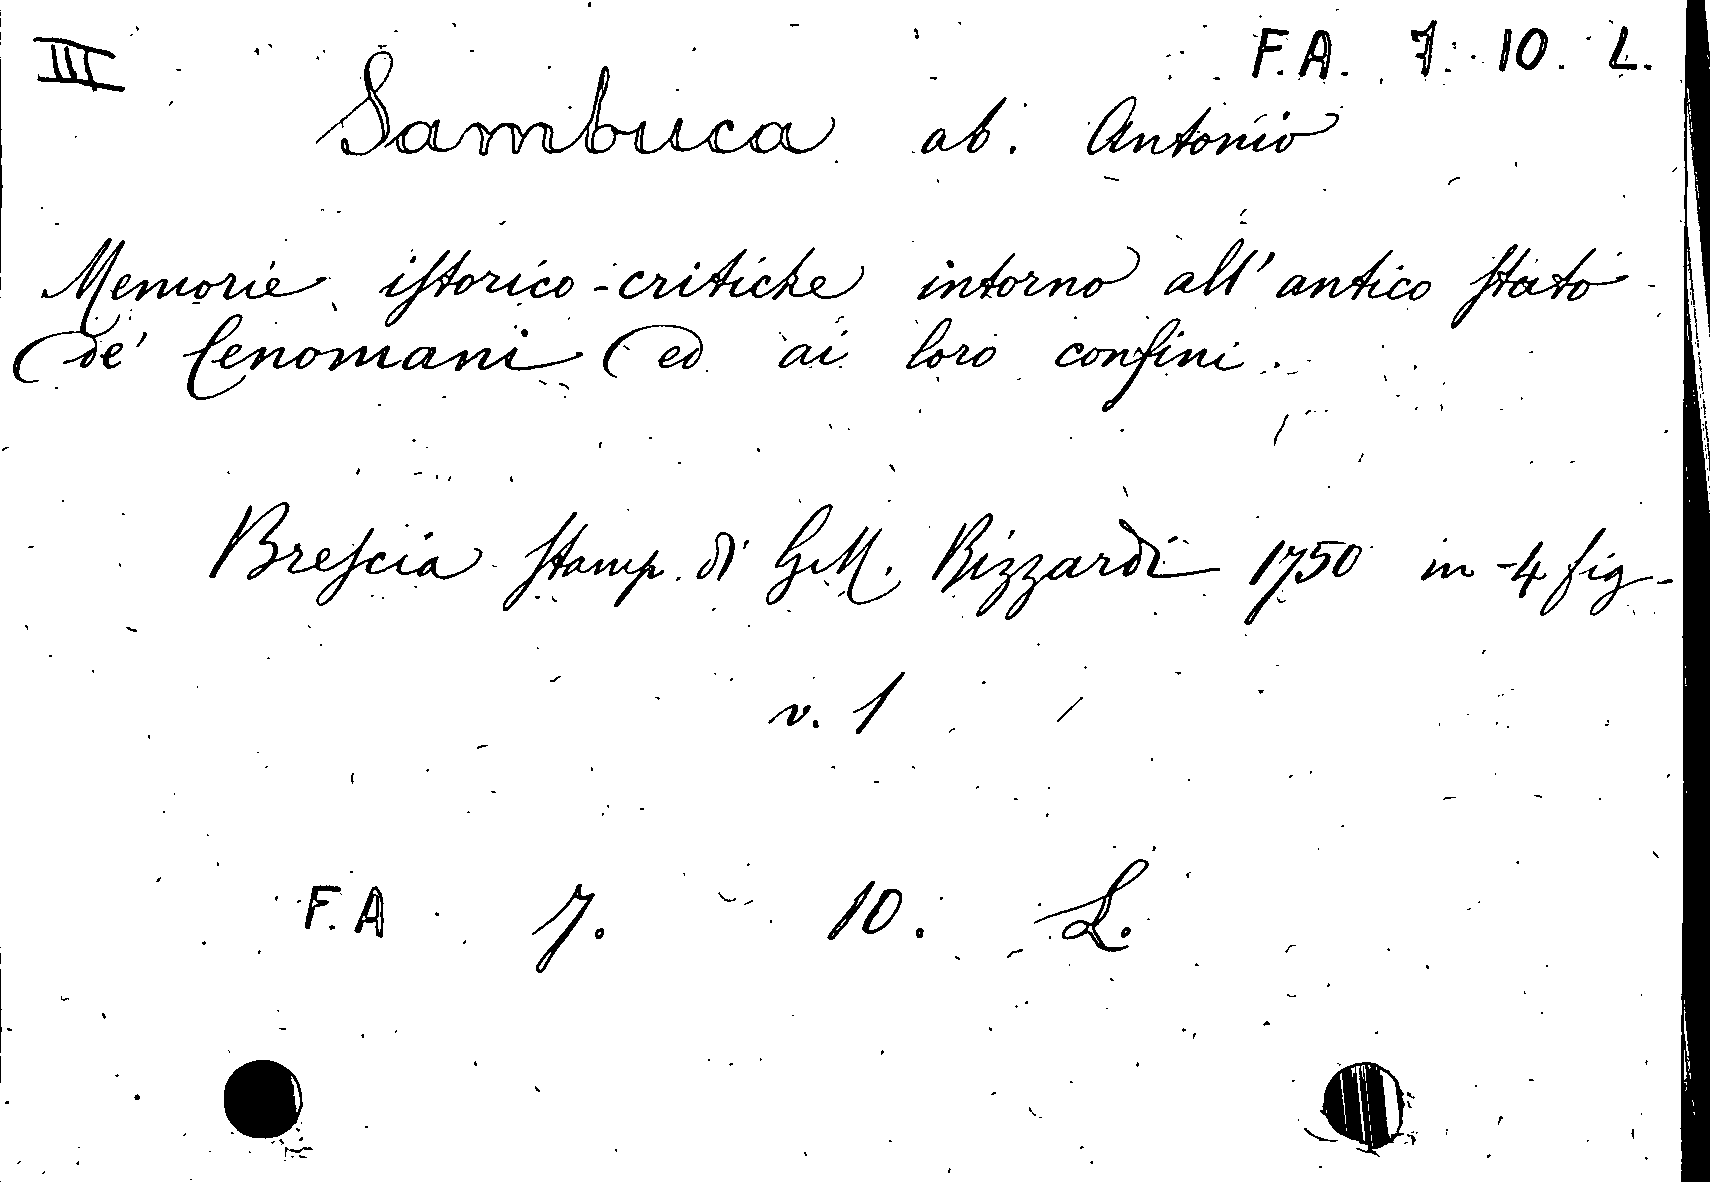 III F.A. 7. 10. L.
Sambuca ab. Antonio
Memorie istorico-critiche intorno all' antico stato
de' Cenomani ed ai loro confini.
Brescia stamp. di G.M. Rizzardi 1750 in-4 fig-
v. 1
F.A 7. 10. L.